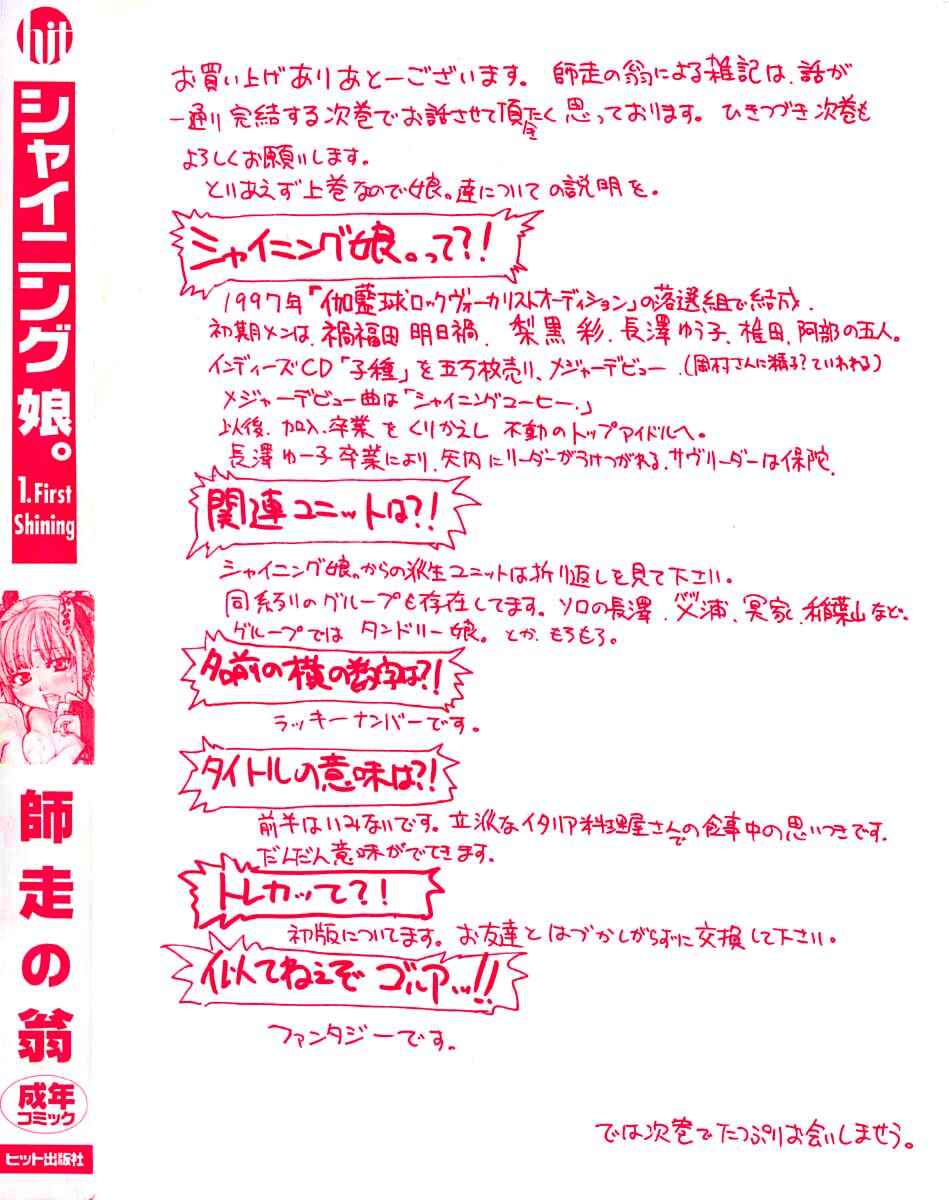 hit
シャイニング娘。
1.First
Shining
師走の翁
成年
コミック
ヒット出版社
お買い上げありあとーございます。 師走の翁による雑記は、話が
一通り完結する次巻でお話させて頂たく思っております。 ひきつづき次巻も
よろしくお願いします。
とりあえず上巻なので娘。達についての説明を。
シャイニング娘。って?!
1997年「伽藍球ロックヴォーカリストオーディション」の落選組で結成。
初期メンは、禍福田 明日禍、 梨黒 彩、長澤ゆう子、椎田、阿部の五人。
インディーズCD「子種」を五万枚売り、メジャーデビュー。(岡村さんに精子?ていわれる)
メジャーデビュー曲は「シャイニングコーヒー。」
以後、加入、卒業をくりかえし 不動のトップアイドルへ。
長澤ゆー子卒業により、矢内にリーダーがうけつがれる、サヴリーダーは保陀。
関連ユニットは?!
シャイニング娘。からの派生ユニットは折り返しを見て下さい。
同系列のグループも存在してます。ソロの長澤、浦、冥家、稲葉山など、
グループでは タンドリー娘。とか、もろもろ。
名前の横の数字は?!
ラッキーナンバーです。
タイトルの意味は?!
前半はいみないです。立派なイタリア料理屋さんでの食事中の思いつきです。
だんだん意味がでてきます。
トレカって?!
初版についてます。お友達とはづかしがらずに交換して下さい。
似てねえぞ ゴルアッ!!
ファンタジーです。
では次巻でたっぷりお会いしませう。